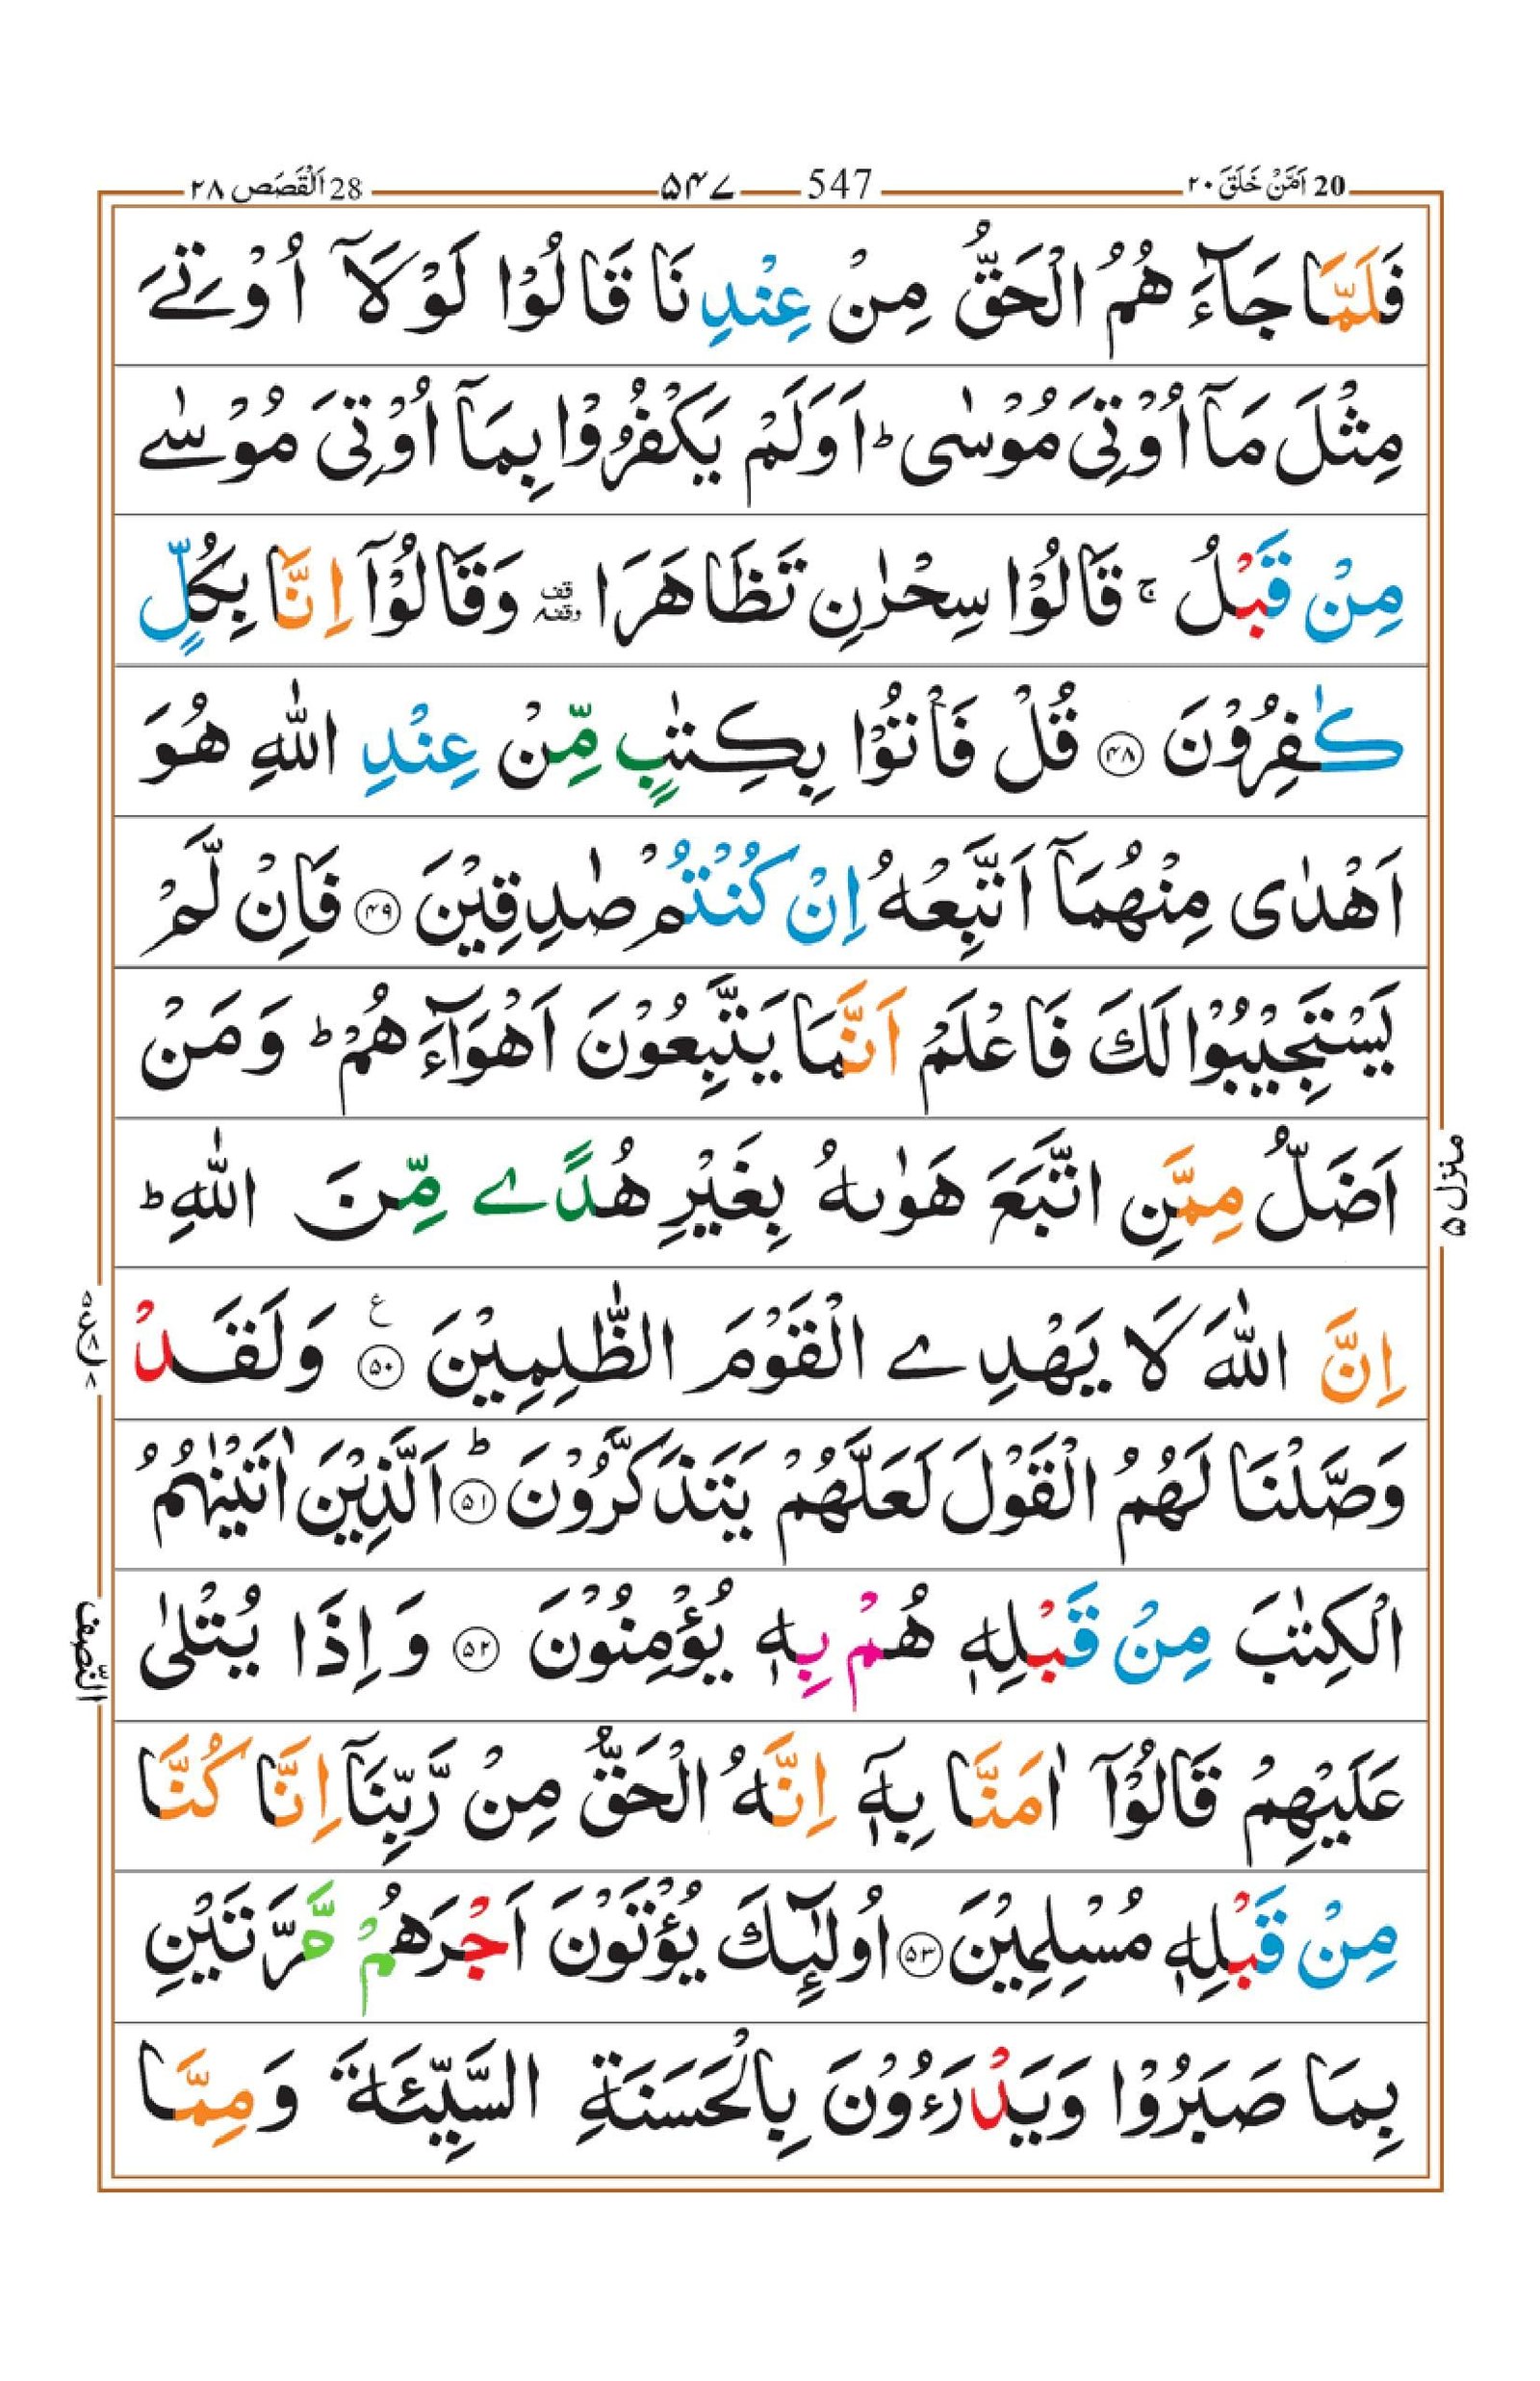 20 اَمَّنْ خَلَقَ ٢٠
547 ۵۴۷
28 اَلْقَصَص ٢٨
فَلَمَّا جَآءَ هُمُ الْحَقُّ مِنْ عِنْدِنَا قَالُوْا لَوْلَآ اُوْتِےَ
مِثْلَ مَآ اُوْتِیَ مُوْسٰی ؕ اَوَلَمْ يَكْفُرُوْا بِمَآ اُوْتِیَ مُوْسٰے
مِنْ قَبْلُ ۚ قَالُوْا سِحْرٰنِ تَظَاهَرَا قف وقفہ وَقَالُوْٓا اِنَّا بِكُلٍّ
كٰفِرُوْنَ ﴿۴۸﴾ قُلْ فَاْتُوْا بِكِتٰبٍ مِّنْ عِنْدِ اللّٰهِ هُوَ
اَهْدٰی مِنْهُمَآ اَتَّبِعْهُ اِنْ كُنْتُمْ صٰدِقِيْنَ ﴿۴۹﴾ فَاِنْ لَّمْ
يَسْتَجِيْبُوْا لَكَ فَاعْلَمْ اَنَّمَا يَتَّبِعُوْنَ اَهْوَآءَهُمْ ؕ وَمَنْ
اَضَلُّ مِمَّنِ اتَّبَعَ هَوٰىهُ بِغَيْرِ هُدًے مِّنَ اللّٰهِ ؕ
اِنَّ اللّٰهَ لَا يَهْدِے الْقَوْمَ الظّٰلِمِيْنَ ﴿۵۰﴾ ع وَلَقَدْ
وَصَّلْنَا لَهُمُ الْقَوْلَ لَعَلَّهُمْ يَتَذَكَّرُوْنَ ﴿۵۱﴾ ؕ اَلَّذِيْنَ اٰتَيْنٰهُمُ
الْكِتٰبَ مِنْ قَبْلِهٖ هُمْ بِهٖ يُؤْمِنُوْنَ ﴿۵۲﴾ وَاِذَا يُتْلٰی
عَلَيْهِمْ قَالُوْٓا اٰمَنَّا بِهٖٓ اِنَّهُ الْحَقُّ مِنْ رَّبِّنَآ اِنَّا كُنَّا
مِنْ قَبْلِهٖ مُسْلِمِيْنَ ﴿۵۳﴾ اُولٰٓئِكَ يُؤْتَوْنَ اَجْرَهُمْ مَّرَّتَيْنِ
بِمَا صَبَرُوْا وَيَدْرَءُوْنَ بِالْحَسَنَةِ السَّيِّئَةَ وَمِمَّا
منزل ۵
النّصف